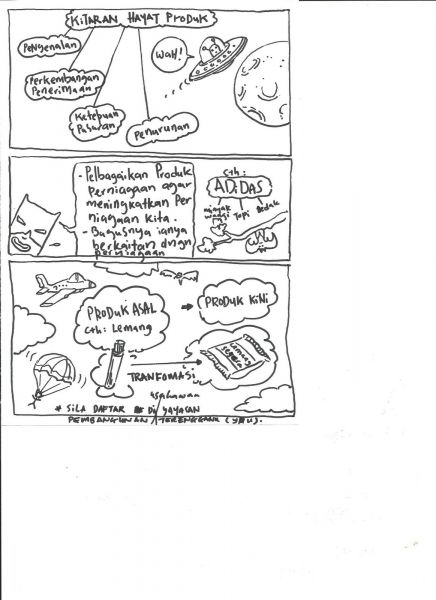 KiTARAN HAYAT PRODUK
PENgENALAN
WAH!
PERKEMBANgAN
PENERiMAAN
KETEPUAN
PASARAN
PENURUNAN
- Pelbagaikan Produk
perniagaan agar
meningkatkan Per
niagaan kita.
- Bagusnya ianya
berkaitan dngn
perniagaan
cth:
ADiDAS
minyak
wangi Topi Bedak
PRODUK ASAL
cth: Lemang
PRODUK KiNi
lemang
segera
TRANFOMASi
usahawan
* SiLA DAFTAR Di YAYASAN
PEMBANGUNAN TERENGGANU